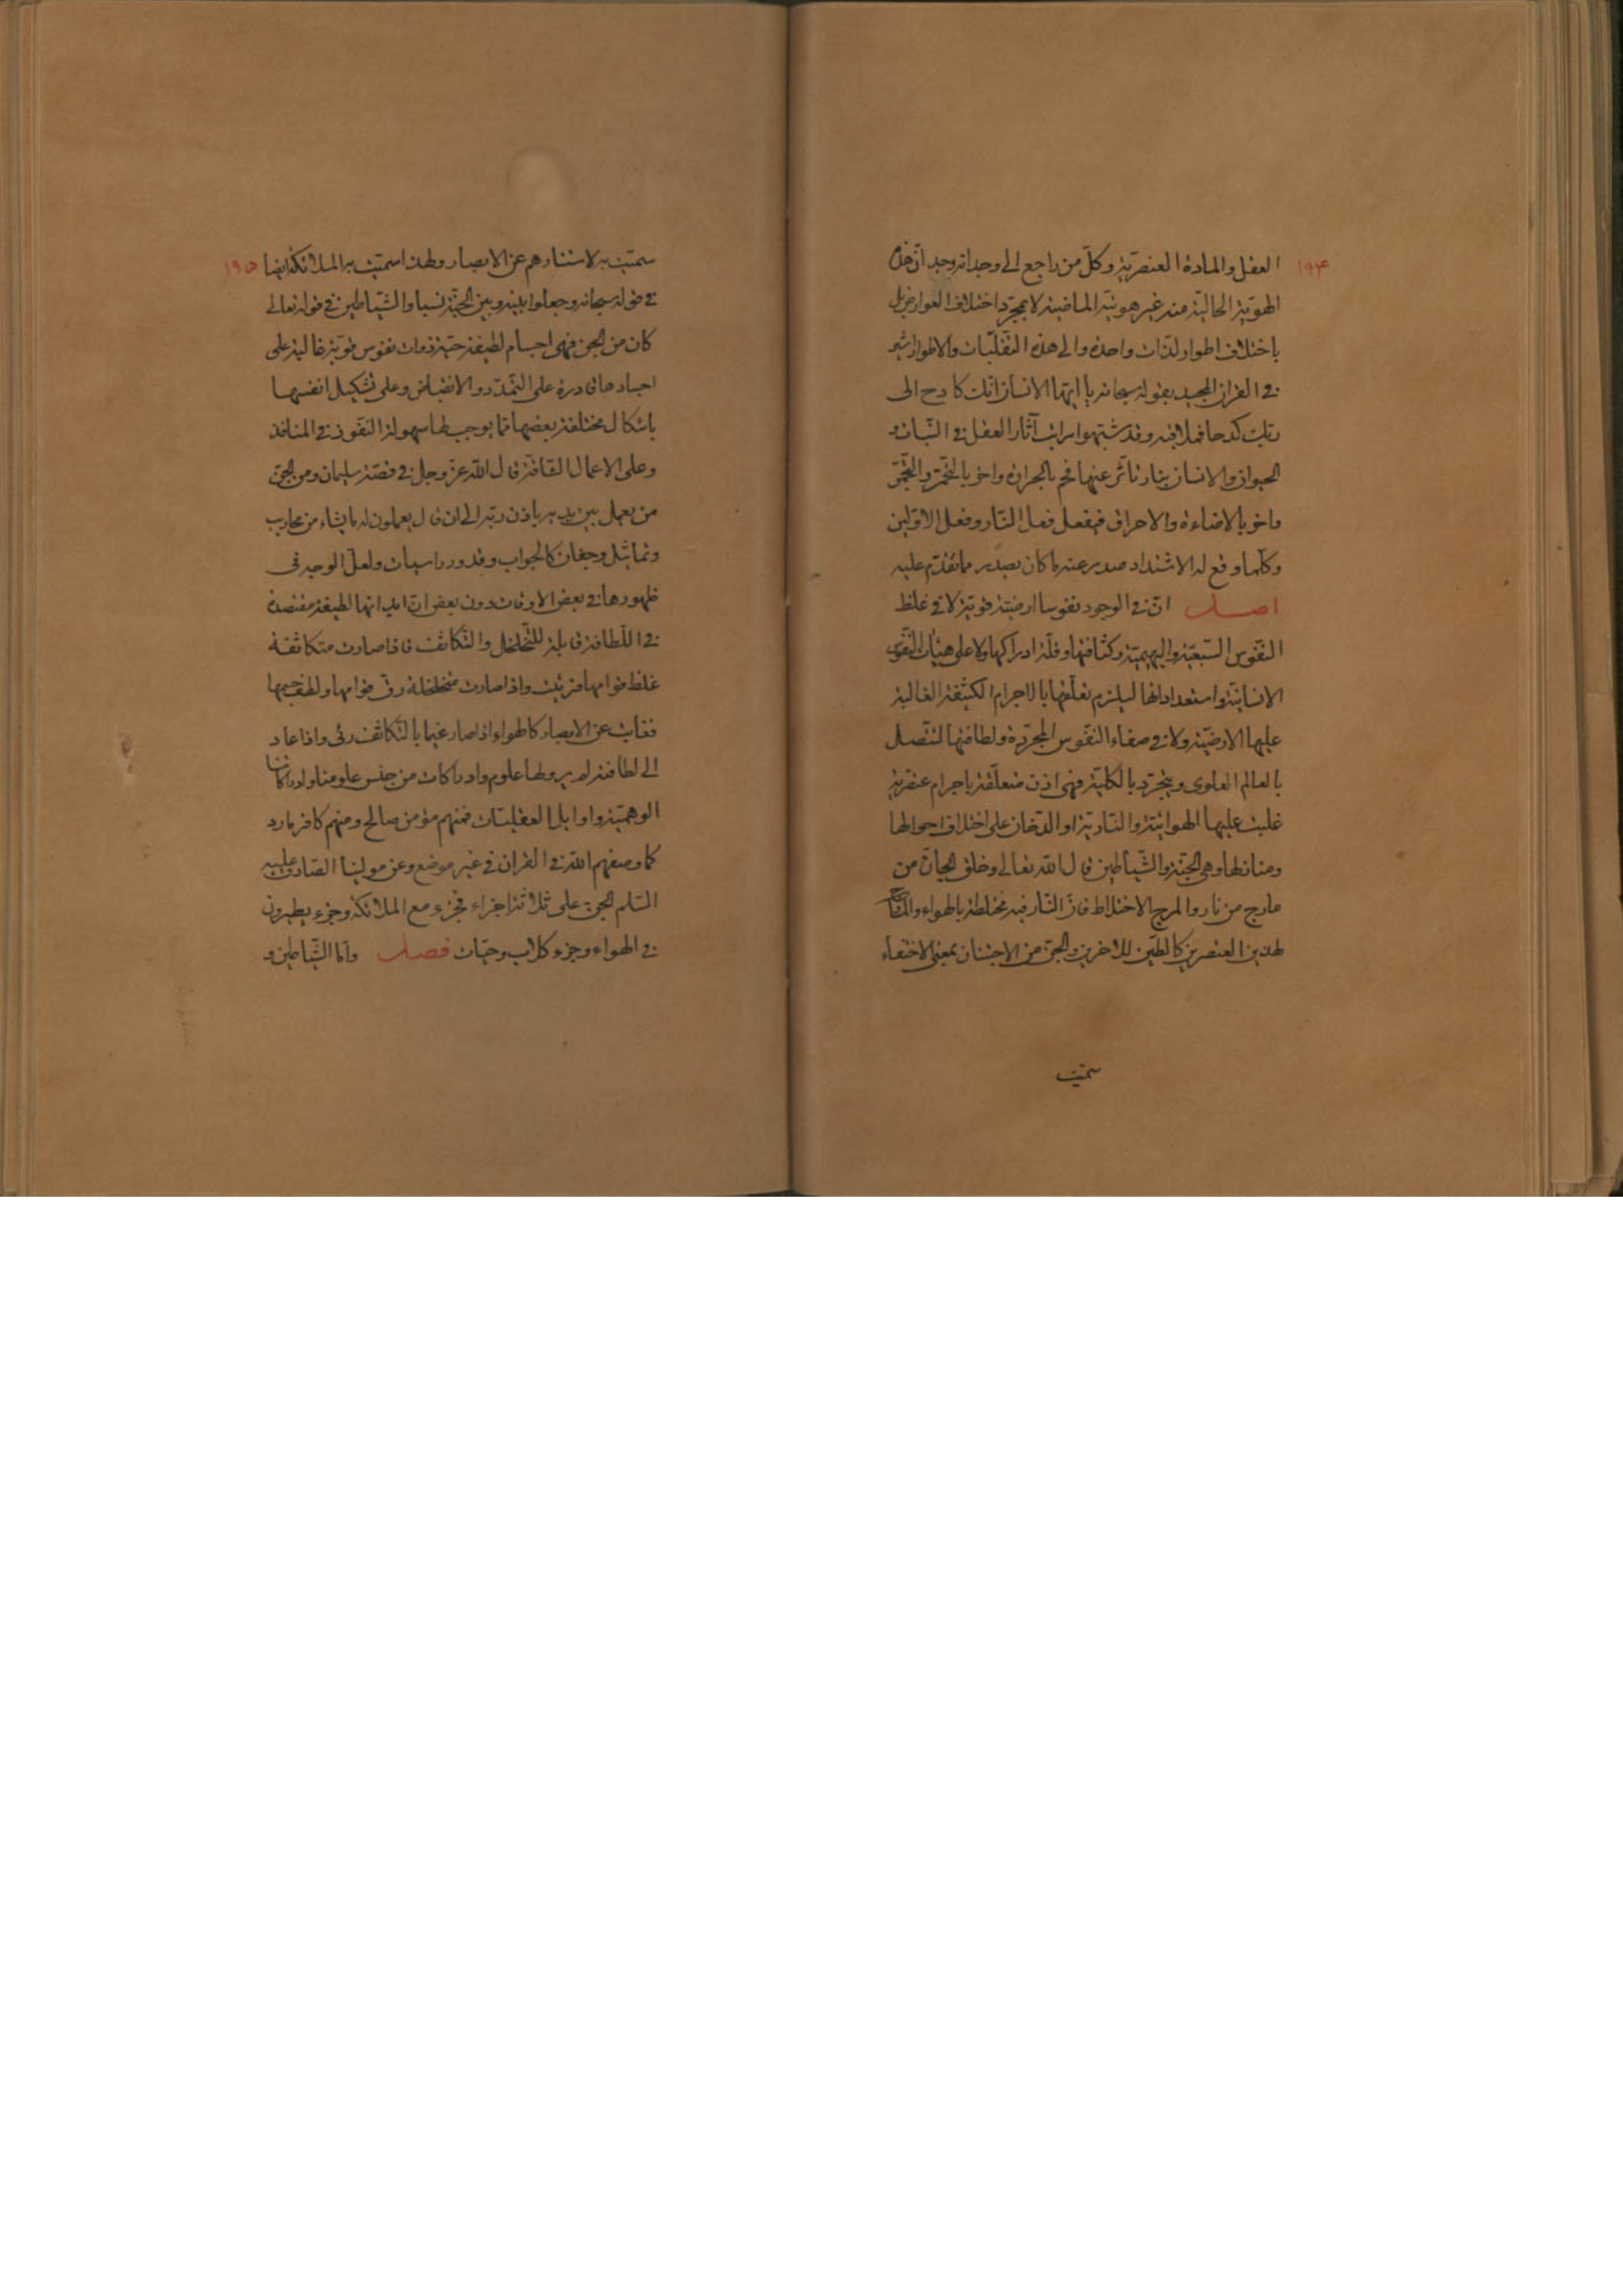 ١٩٤
العقل والمادة العنصریّة وكلّ من راجع الى وجدانه وجد انّ هذه
الهويّة الحاليّة منه غير هويّته الماضية لا بمجرّد اختلاف العوارض بل
باختلاف اطوار لذات واحدة والى هذه التقلّبات والاطوار اشير
فى القران المجيد بقوله سبحانه يا ايّها الانسان انّك كادح الى
ربّك كدحا فملاقيه وقد شبّهوا مراتب آثار العقل فى النّبات و
الحيوان والانسان بنار تأثّر عنها فحم بالحرارة واخر بالتّحمّر والتّجمّر
واخر بالاضاءة والاحراق فيفعل فعل النّار وفعل الاوّلين
وكلّما وقع له الاشتداد صدر عنه ما كان يصدر مما تقدّم عليه
اصل انّ فى الوجود نفوسا ارضيّة قويّة لا فى غلظ
النّفوس السّبعيّة والبهيميّة وكثافتها وقلّة ادراكها ولا على هيئات النّفوس
الانسانيّة واستعداداتها ليلزم تعلّقها بالاجرام الكثيفة الغالبة
عليها الارضيّة ولا فى صفاء النّفوس المجرّدة ولطافتها لتتّصل
بالعالم العلوى ويتجرّد بالكليّة فهى اذن متعلّقة باجرام عنصرية
غلبت عليها الهوائيّة والنّاريّة او الدّخان على اختلاف احوالها
ومنازلها وهى الجنّة والشّياطين قال الله تعالى وخلق الجانّ من
مارج من نار والمرج الاختلاط فانّ النّار فيه مختلطة بالهواء
لهذين العنصرين كالطّين للاخرين والجنّ من الاجتنان بمعنى الاختفاء
سمّيت
١٩٥
سمّيت به لاستتارهم عن الابصار ولهذا سمّيت به الملائكة ايضا
فى قوله سبحانه وجعلوا بينه وبين الجنّة نسبا والشّياطين فى قوله تعالى
كان من الجنّ فهى اجسام لطيفة حيّة ذوات نفوس قويّة غالبة على
اجسادها قادرة على التّمدّد والانقباض وعلى تشكيل انفسها
باشكال مختلفة بعضها ممّا يوجب لها سهولة النّفوذ فى المنافذ
وعلى الاعمال الشّاقّة قال الله عزّ وجل فى قصّة سليمان ومن الجنّ
من يعمل بين يديه باذن ربّه الى ان قال يعملون له ما يشاء من محاريب
وتماثيل وجفان كالجواب وقدور راسيات ولعلّ الوجه فى
ظهورها فى بعض الاوقات دون بعض انّ ابدانها لطيفة مقتصدة
فى اللّطافة قابلة للتّخلخل والتّكاثف فاذا صارت متكاثفة
غلظ قوامها فرئيت واذا صارت متخلخلة رقّ قوامها ولطف جسمها
فغابت عن الابصار كالهواء اذا صار غيما بالتّكاثف رئى واذا عاد
الى لطافته لم ير ولها علوم وادراكات من جنس علومنا وادراكاتنا
الوهميّة واوايل العقليّات فمنهم مؤمن صالح ومنهم كافر مارد
كما وصفهم الله فى القران فى غير موضع وعن مولينا الصّادق عليه
السّلم الجنّ على ثلاثة اجزاء فجزء مع الملائكة وجزء يطيرون
فى الهواء وجزء كلاب وحيّات فصل وامّا الشّياطين و